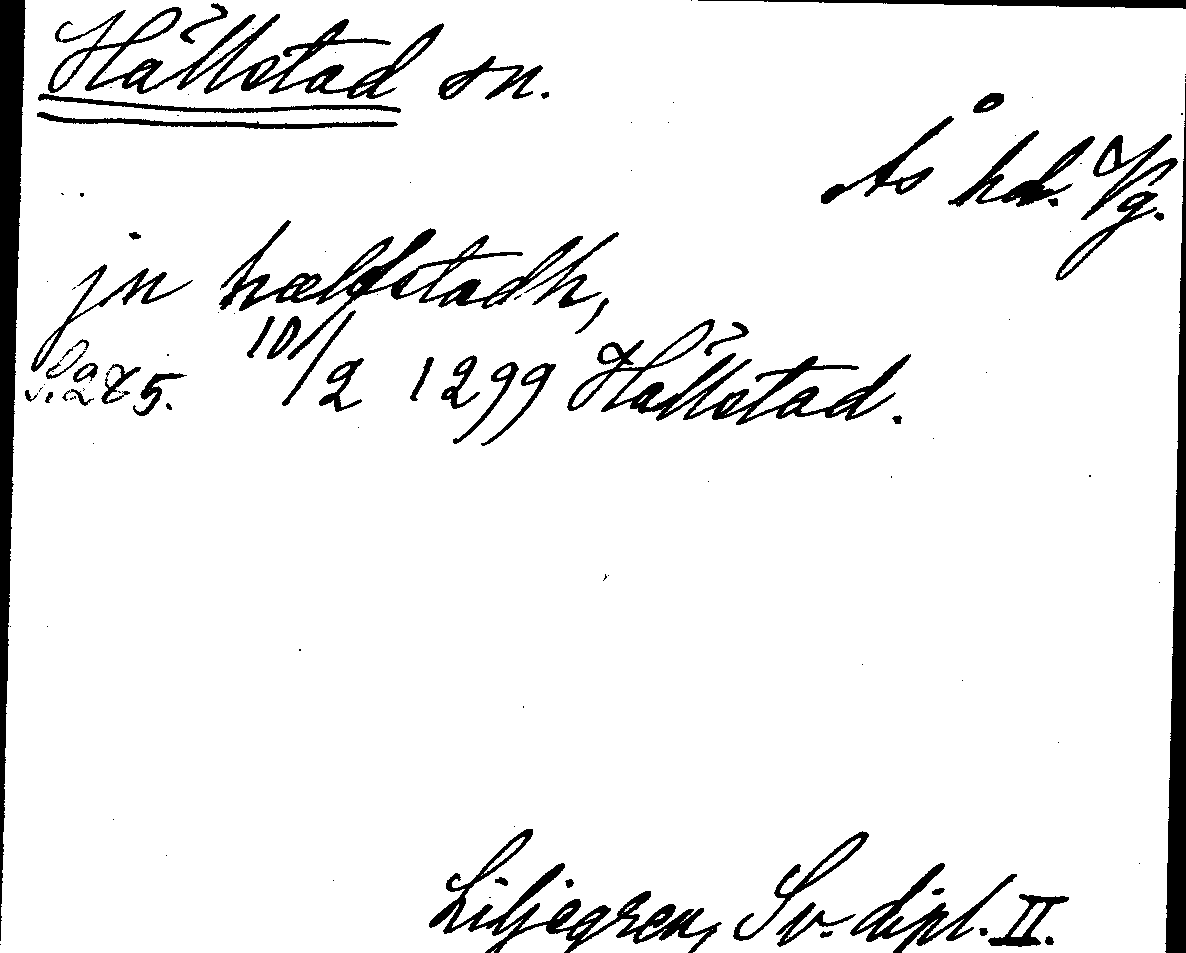 Hällstad sn.
Ås hd. Vg.
jn hælfstadh,
S. 285. 10/2 1299 Hällstad.
Liljegren, Sv. dipl. II.